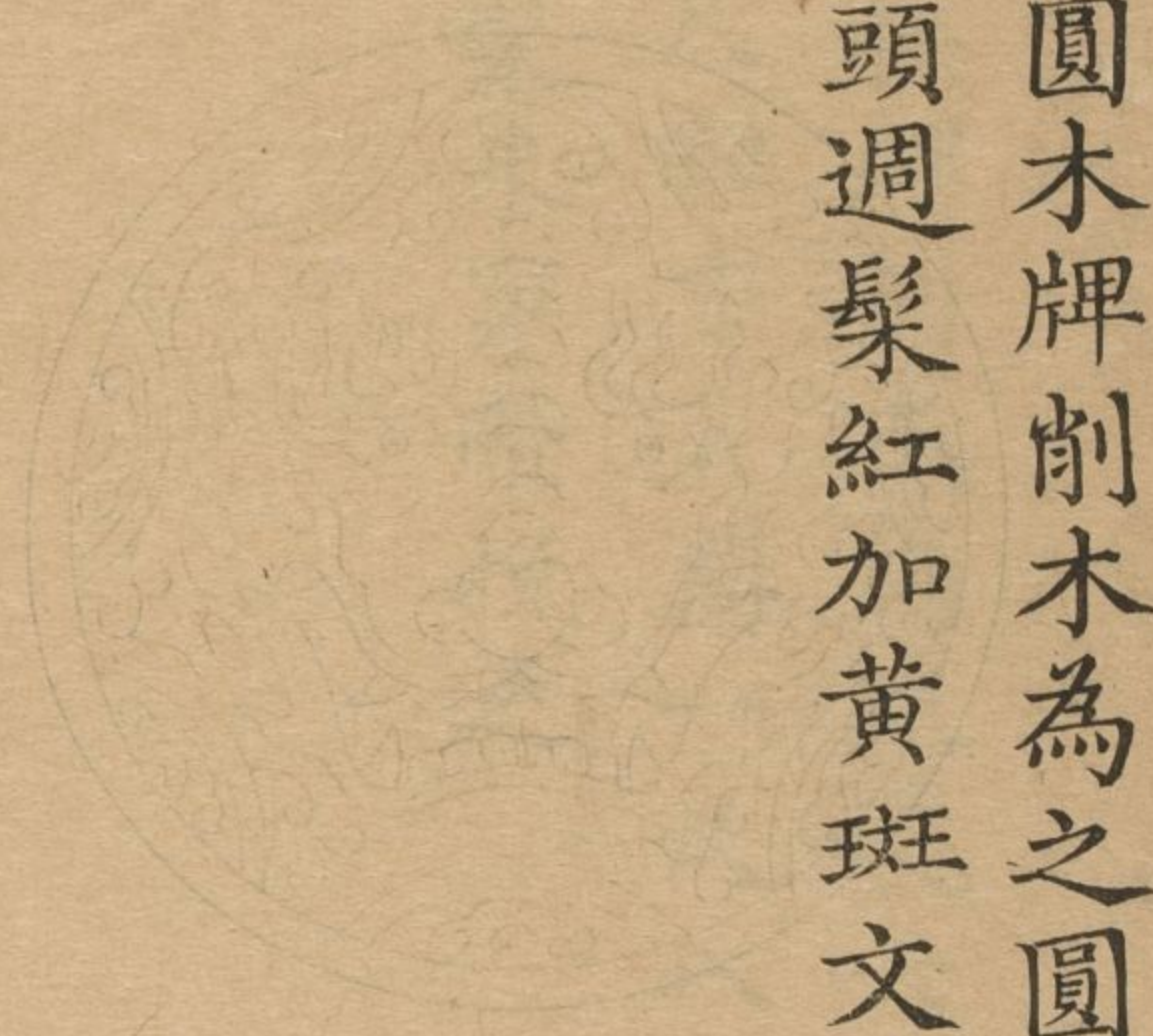 圓木牌削木為之圓
頭週髹紅加黃斑文